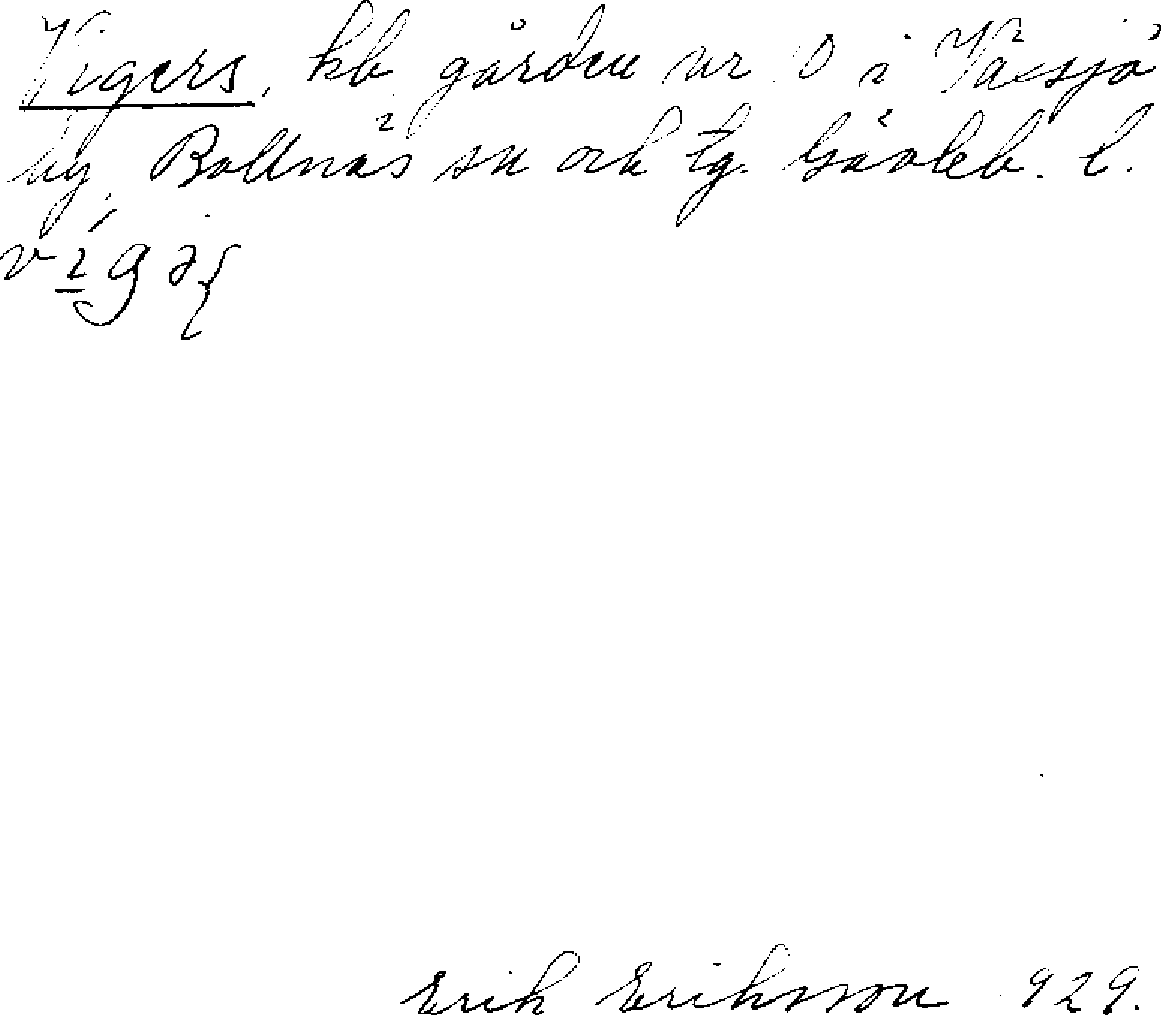 Vigers, kb gården nr 10 i Växsjö
by, Bollnäs sn och tg. Gävleb. l.
Erik Eriksson 1929.